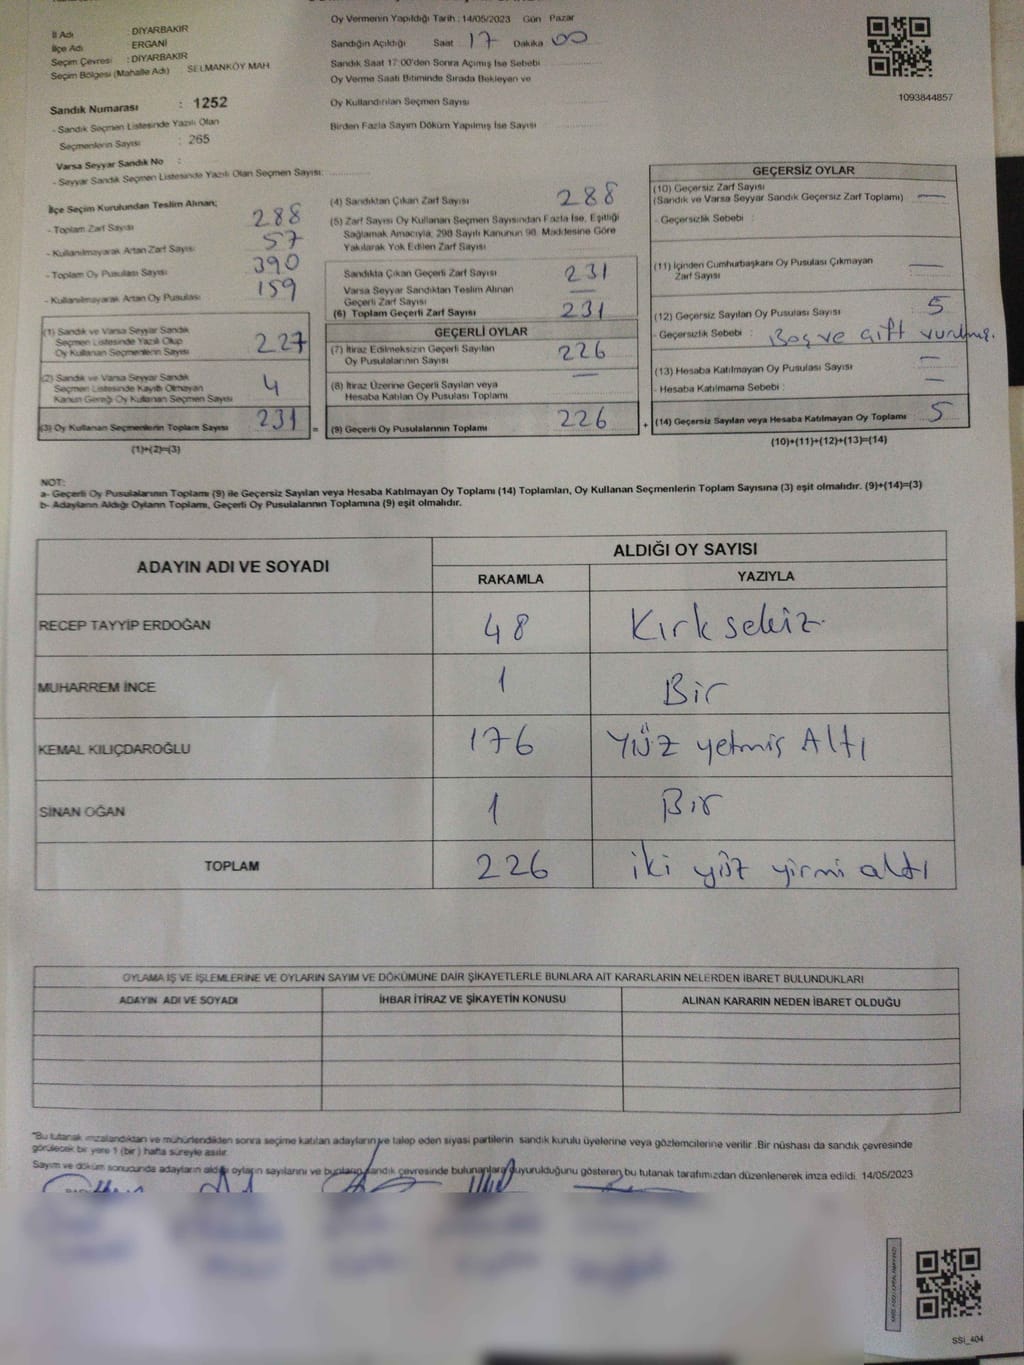 Oy Vermenin Yapıldığı Tarih : 14/05/2023 Gün Pazar
İl Adı : DİYARBAKIR
İlçe Adı : ERGANİ
Seçim Çevresi : DİYARBAKIR
Seçim Bölgesi (Mahalle Adı) : SELMANKÖY MAH
Sandığın Açıldığı Saat 17 Dakika 00
Sandık Saat 17:00'den Sonra Açımış İse Sebebi
Oy Verme Saati Bitiminde Sırada Bekleyen ve
Oy Kullandırılan Seçmen Sayısı
Birden Fazla Sayım Döküm Yapılmış İse Sayısı
1093844857
Sandık Numarası : 1252
- Sandık Seçmen Listesinde Yazılı Olan
Seçmenlerin Sayısı : 265
Varsa Seyyar Sandık No :
- Seyyar Sandık Seçmen Listesinde Yazılı Olan Seçmen Sayısı:
İlçe Seçim Kurulundan Teslim Alınan;
- Toplam Zarf Sayısı 288
- Kullanılmayarak Artan Zarf Sayısı 57
- Toplam Oy Pusulası Sayısı 390
- Kullanılmayarak Artan Oy Pusulası 159
(1) Sandık ve Varsa Seyyar Sandık
Seçmen Listesinde Yazılı Olup
Oy Kullanan Seçmenlerin Sayısı 227
(2) Sandık ve Varsa Seyyar Sandık
Seçmen Listesinde Kayıtlı Olmayan
Kanun Gereği Oy Kullanan Seçmen Sayısı 4
(3) Oy Kullanan Seçmenlerin Toplam Sayısı 231 =
(1)+(2)=(3)
(4) Sandıktan Çıkan Zarf Sayısı 288
(5) Zarf Sayısı Oy Kullanan Seçmen Sayısından Fazla İse, Eşitliği
Sağlamak Amacıyla, 298 Sayılı Kanunun 98. Maddesine Göre
Yakılarak Yok Edilen Zarf Sayısı
Sandıkta Çıkan Geçerli Zarf Sayısı 231
Varsa Seyyar Sandıktan Teslim Alınan
Geçerli Zarf Sayısı —
(6) Toplam Geçerli Zarf Sayısı 231
GEÇERLİ OYLAR
(7) İtiraz Edilmeksizin Geçerli Sayılan
Oy Pusulalarının Sayısı 226
(8) İtiraz Üzerine Geçerli Sayılan veya
Hesaba Katılan Oy Pusulası Toplamı —
(9) Geçerli Oy Pusulalarının Toplamı 226 +
GEÇERSİZ OYLAR
(10) Geçersiz Zarf Sayısı
(Sandık ve Varsa Seyyar Sandık Geçersiz Zarf Toplamı) —
- Geçersizlik Sebebi :
(11) İçinden Cumhurbaşkanı Oy Pusulası Çıkmayan
Zarf Sayısı —
(12) Geçersiz Sayılan Oy Pusulası Sayısı 5
- Geçersizlik Sebebi : Boş ve çift vurulmuş.
(13) Hesaba Katılmayan Oy Pusulası Sayısı —
- Hesaba Katılmama Sebebi : —
(14) Geçersiz Sayılan veya Hesaba Katılmayan Oy Toplamı 5
(10)+(11)+(12)+(13)=(14)
NOT:
a- Geçerli Oy Pusulalarının Toplamı (9) ile Geçersiz Sayılan veya Hesaba Katılmayan Oy Toplamı (14) Toplamları, Oy Kullanan Seçmenlerin Toplam Sayısına (3) eşit olmalıdır. (9)+(14)=(3)
b- Adayların Aldığı Oyların Toplamı, Geçerli Oy Pusulalarının Toplamına (9) eşit olmalıdır.
ADAYIN ADI VE SOYADI
ALDIĞI OY SAYISI
RAKAMLA YAZIYLA
RECEP TAYYİP ERDOĞAN 48 Kırk sekiz
MUHARREM İNCE 1 Bir
KEMAL KILIÇDAROĞLU 176 Yüz yetmiş Altı
SİNAN OĞAN 1 Bir
TOPLAM 226 iki yüz yirmi altı
OYLAMA İŞ VE İŞLEMLERİNE VE OYLARIN SAYIM VE DÖKÜMÜNE DAİR ŞİKAYETLERLE BUNLARA AİT KARARLARIN NELERDEN İBARET BULUNDUKLARI
ADAYIN ADI VE SOYADI İHBAR İTİRAZ VE ŞİKAYETİN KONUSU ALINAN KARARIN NEDEN İBARET OLDUĞU
"Bu tutanak imzalandıktan ve mühürlendikten sonra seçime katılan adayların ve talep eden siyasi partilerin sandık kurulu üyelerine veya gözlemcilerine verilir. Bir nüshası da sandık çevresinde
görülecek bir yere 1 (bir) hafta süreyle asılır.
Sayım ve döküm sonucunda adayların aldığı oyların sayılarını ve bunların sandık çevresinde bulunanlara duyurulduğunu gösteren bu tutanak tarafımızdan düzenlenerek imza edildi. 14/05/2023
SSİ_404